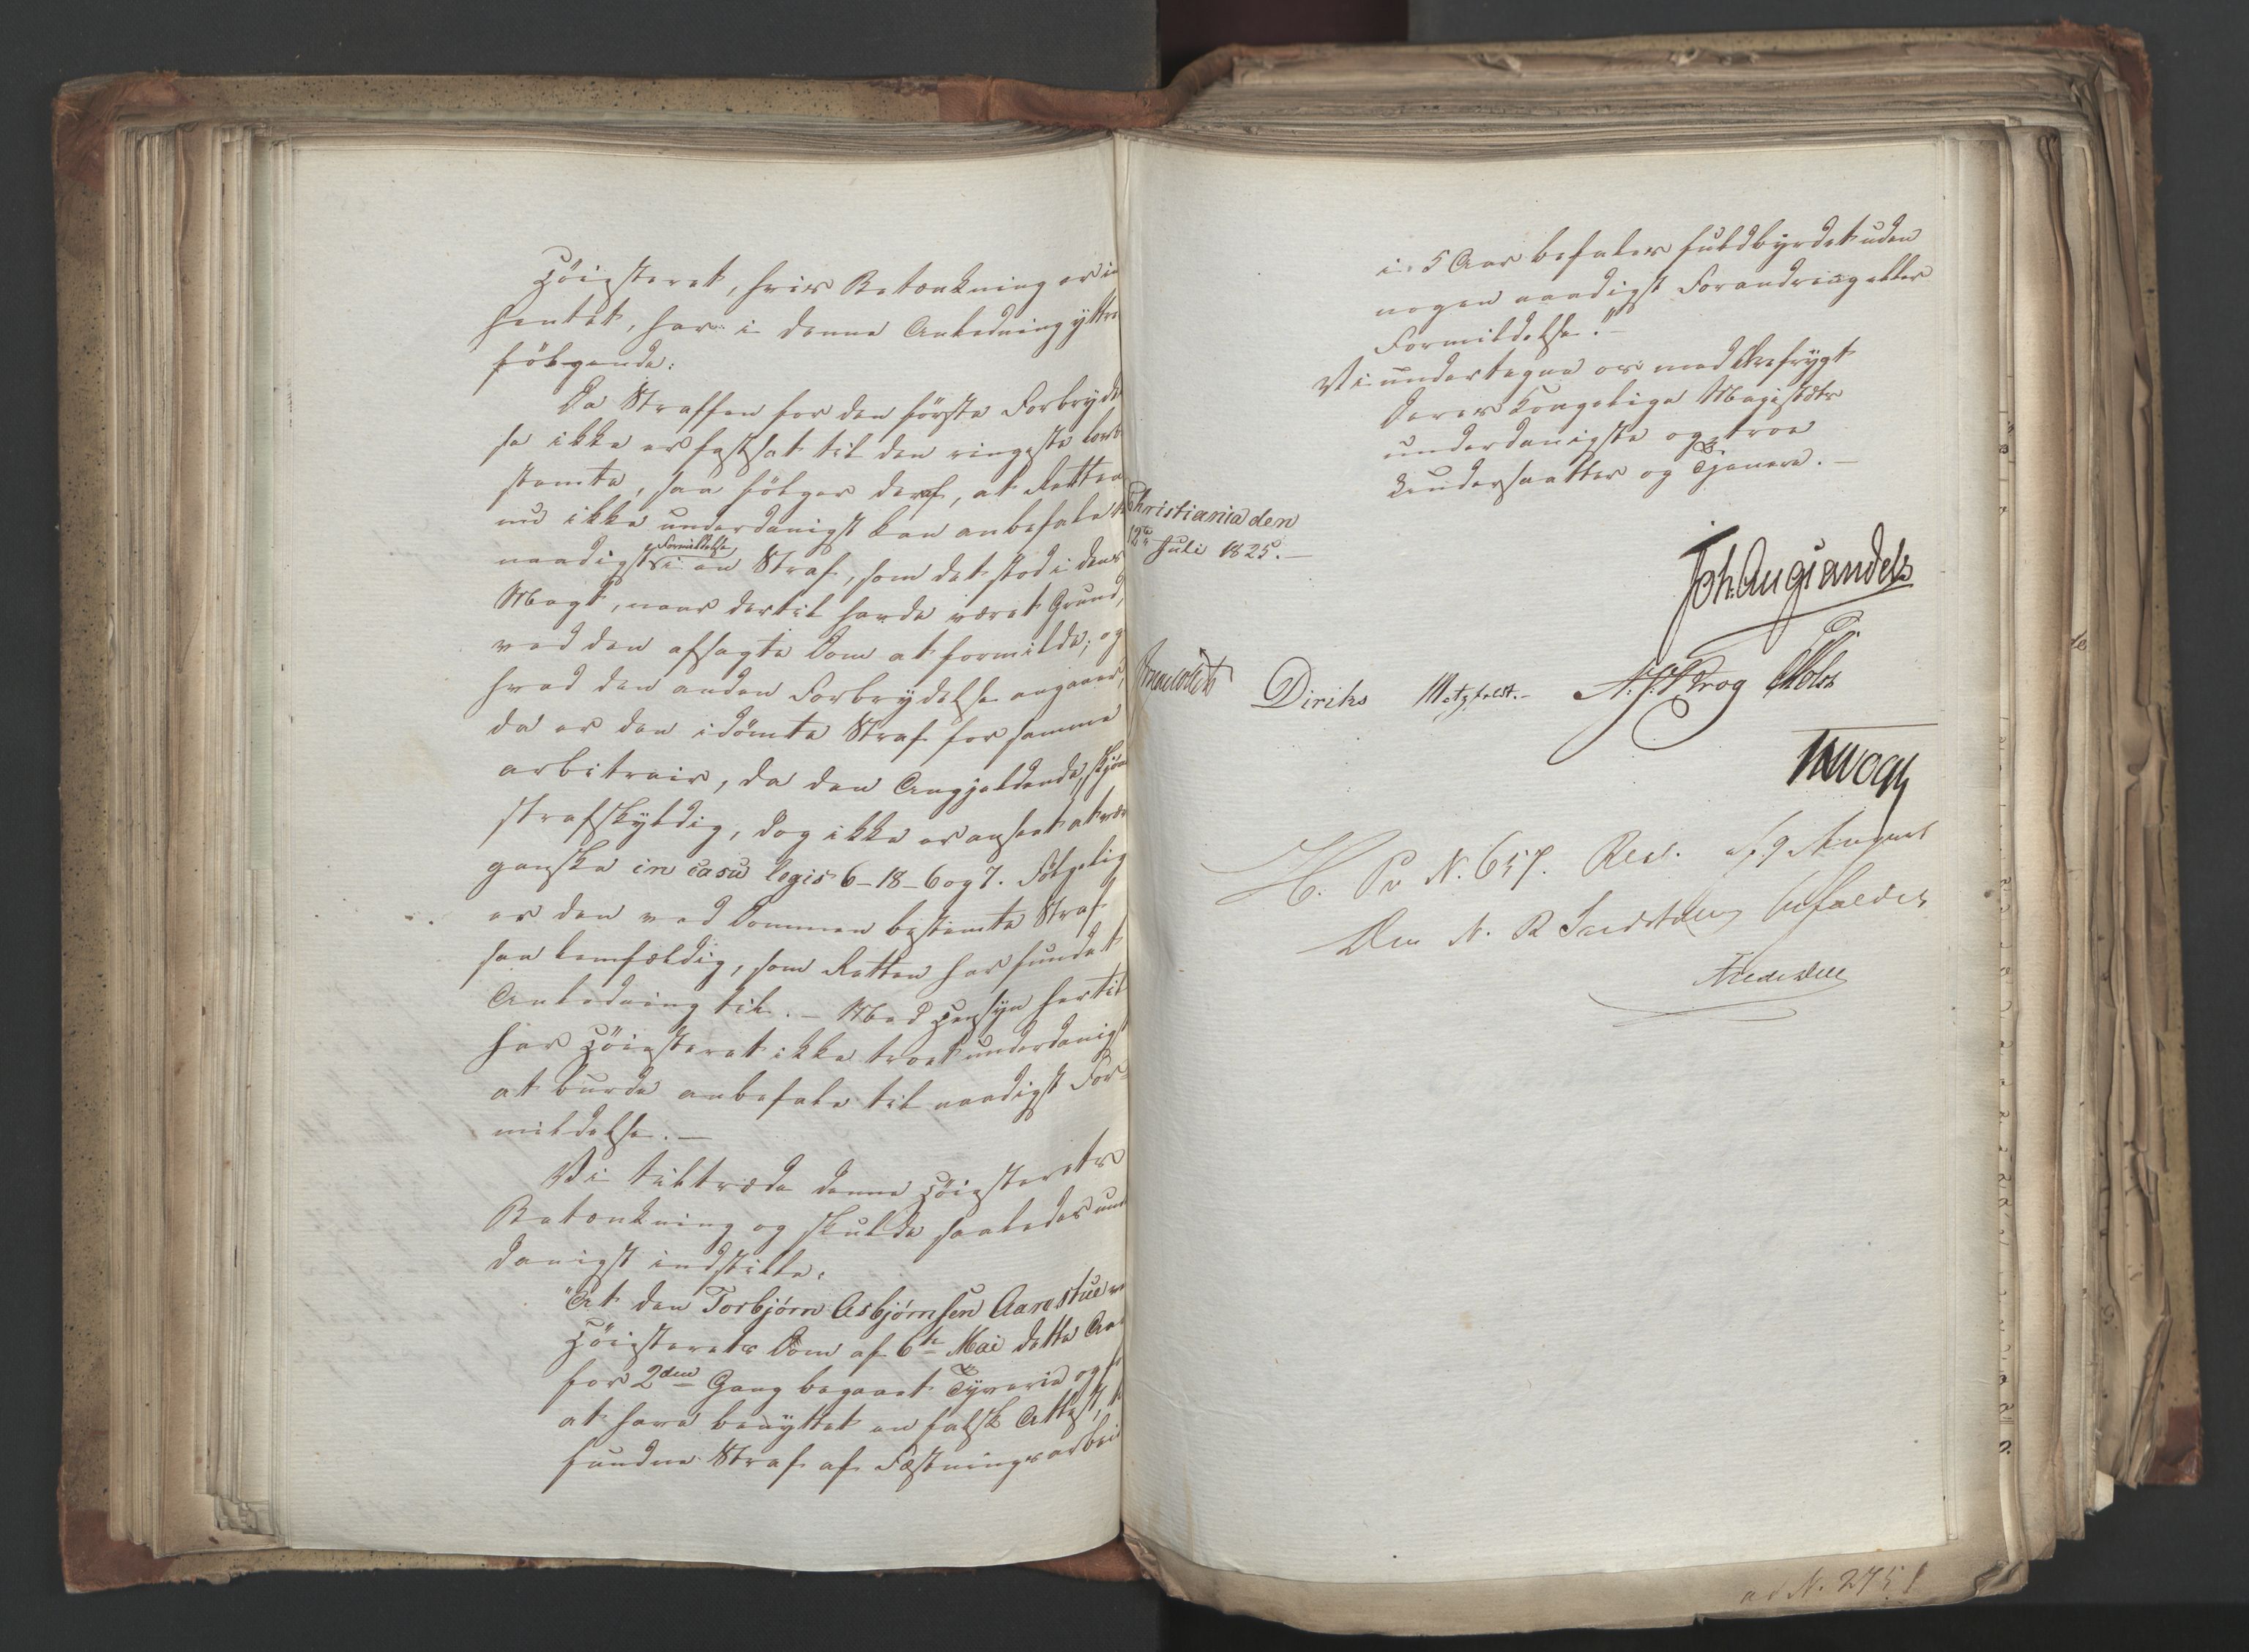 Höiesteret, hvis Betænkning er in
hentet, har i denne Anledning yttre
fölgende:
Da Straffen for den förste Forbrydel
se ikke er fastsat til den ringeste lovbe
stemte, saa fölger deraf, at Retten
nu ikke underdanigst kan anbefale til
naadigst Formildelse i en Straf, som det stod i dens
Magt, naar dertil havde været Grund,
ved den afsagte Dom at formilde; og
hvad den anden Forbrydelse angaaer,
da er den idömte Straf for samme
arbitrair, da den Angjeldende, skjön
strafskyldig, dog ikke er anseet at være
ganske in casu legis 6-18-6 og 7. Fölgelig
er den ved Dommen bestemte Straf
saa lemfældig, som Retten har fundet
Anledning til. – Med Hensyn hertil
har Höiesteret ikke troet underdanigst
at burde anbefale til naadigst For-
mildelse. –
Vi tiltræde denne Höiesterets
Betænkning og skulde saaledes und
danigst indstille:
"At den Torbjørn Asbjørnsen Aarestue ve
Höiesterets Dom af 6te Mai dette Aar
for 2den Gang begaaet Tyverie og for
at have benyttet en falsk Attest, til
fundne Straf af Fæstningsarbeid
i 5 Aar befales fuldbyrdet uden
nogen naadigst Forandring eller
Formildelse." –
Vi undertegne os med Ærefrygt
Deres Kongelige Majestæts
underdanigste og troe
Undersaatter og Tjenere. –
Christiania den
12te Juli 1825. –
Joh. Aug. Sandels
Diriks Motzfeldt. – N. J. Krog Holst
H. Pr N. 657. Res. af 9 August
Den N. R Indstilling bifaldes
ad N. 2751